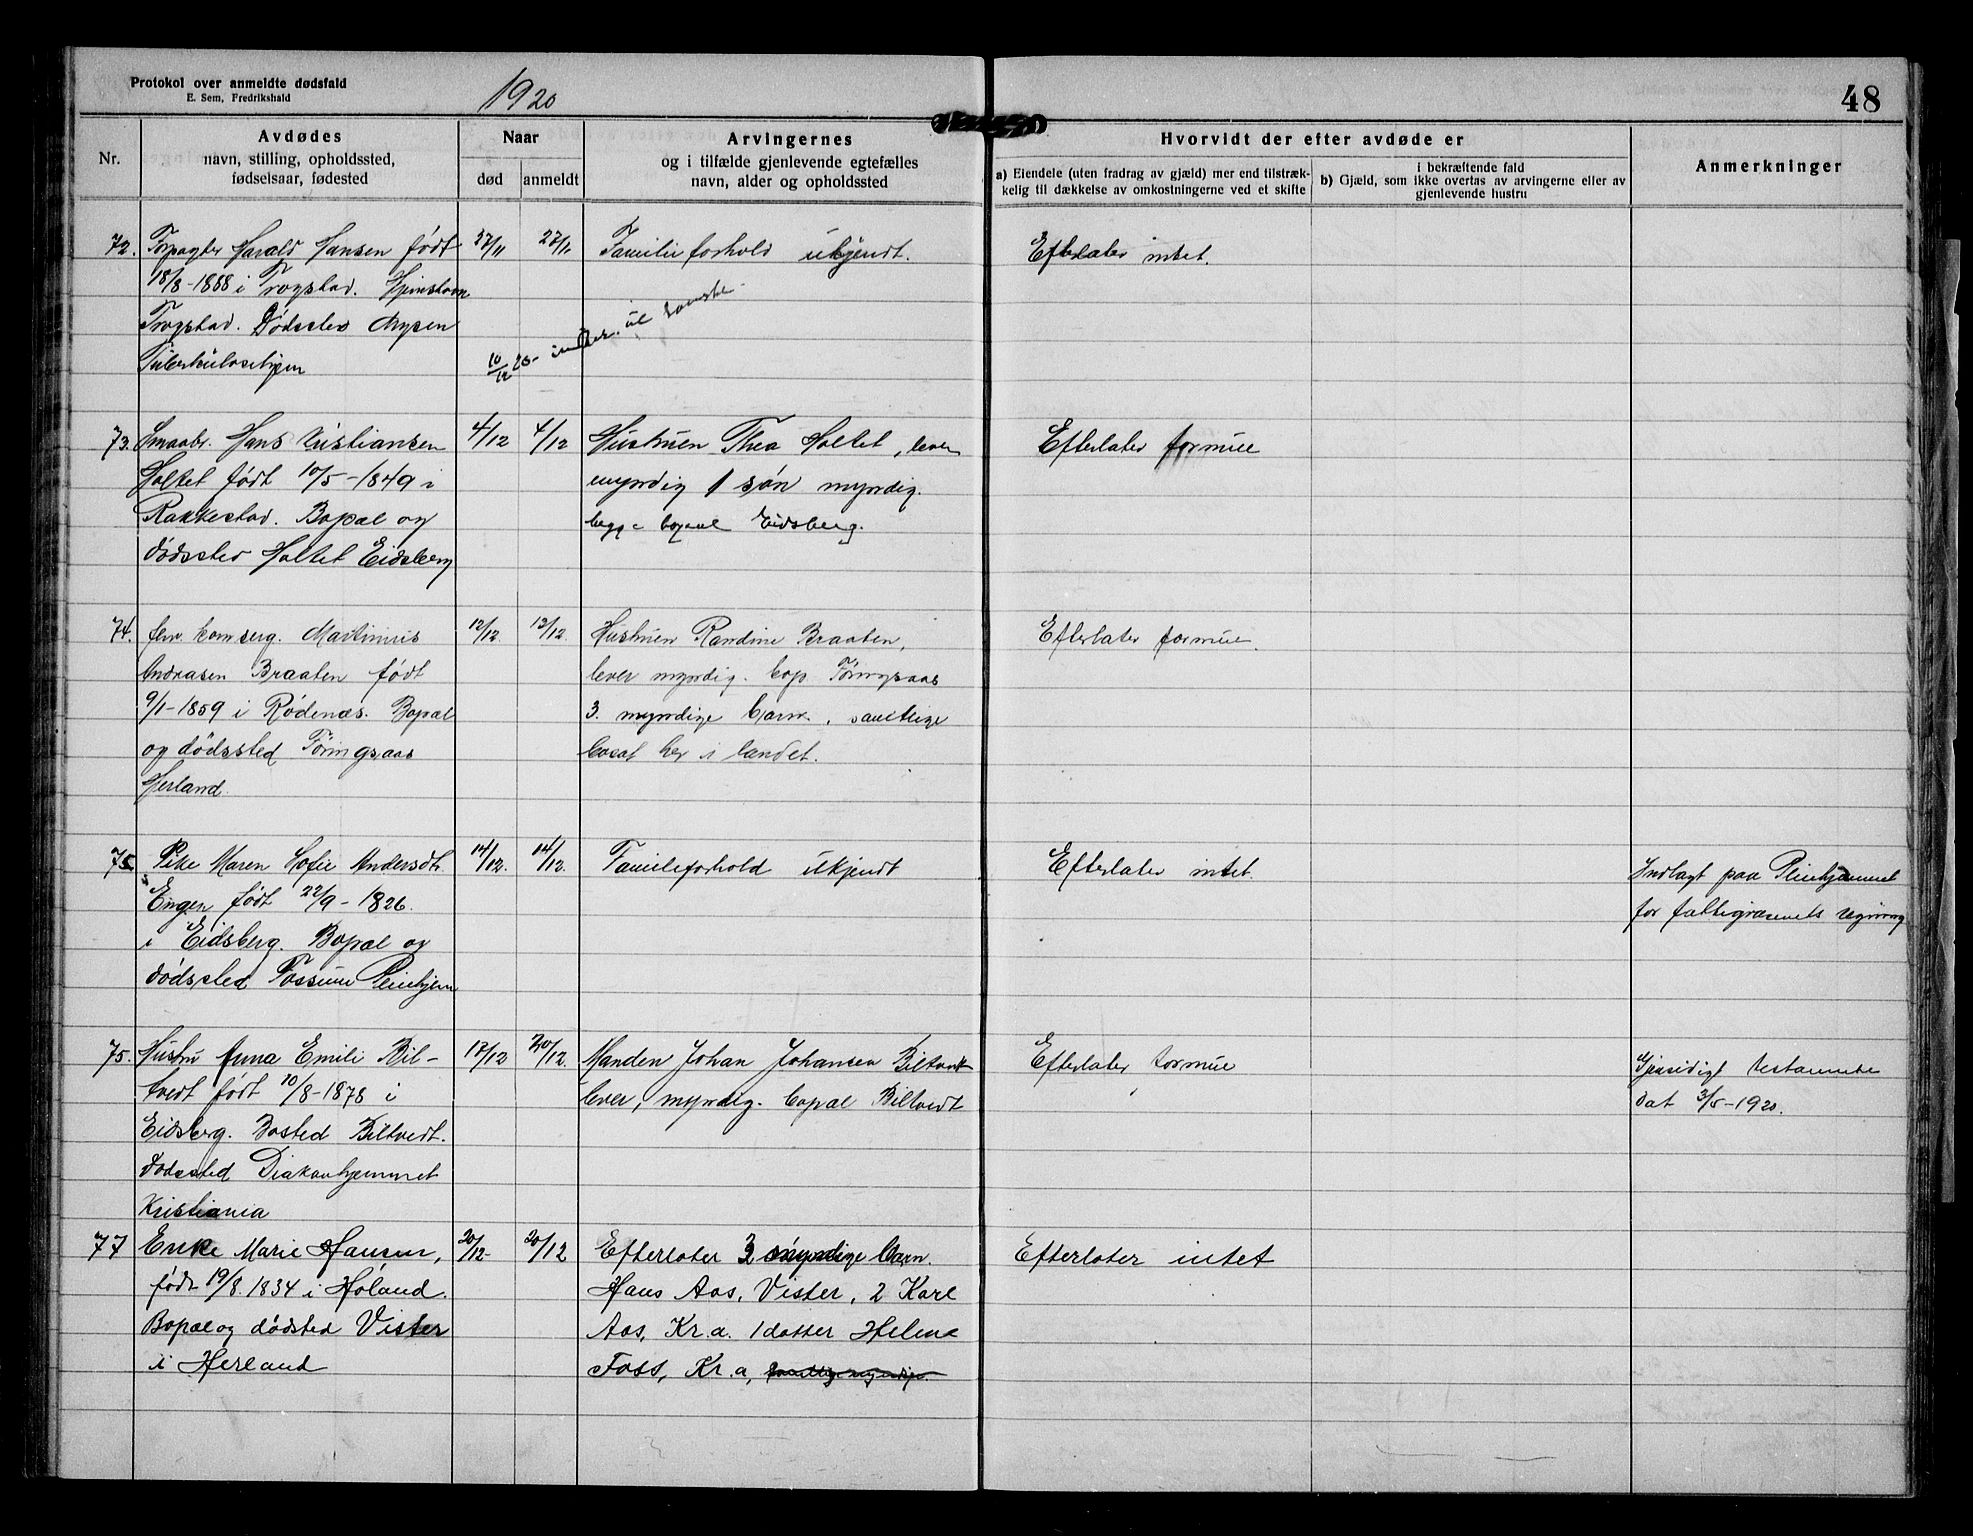 Protokol over anmeldte dødsfald
E. Sem, Fredrikshald
1920
48
Nr.
Avdødes
navn, stilling, opholdssted,
fødselsaar, fødested
Naar
død
anmeldt
Arvingernes
og i tilfælde gjenlevende egtefælles
navn, alder og opholdssted
Hvorvidt der efter avdøde er
a) Eiendele (uten fradrag av gjæld) mer end tilstræk-
kelig til dækkelse av omkostningerne ved et skifte
i bekræftende fald
b) Gjæld, som ikke overtas av arvingerne eller av
gjenlevende hustru
Anmerkninger
72. Harald Hansen født
18/8-1888 i Trøgstad. Hjemstavn
Trøgstad. Dødssted Mysen
Tuberkulosehjem
27/11 27/11
Familieforhold ukjendt.
Efterlater intet.
73. Smaabr. Hans Kristiansen
Holtet født 10/5-1849 i
Rakkestad. Bopæl og
dødssted Holtet Eidsberg
4/12 4/12
Hustruen Thea Holtet, lever
myndig 1 søn myndig.
begge bopæl Eidsberg.
Efterlater formue
74. Martinius
Andreasen Braaten født
9/1-1859 i Rødenæs. Bopæl
og dødssted Tøringsaas
Herland.
12/12. 13/12.
Hustruen Randine Braaten,
lever myndig. bop. Tøringsaas
3. myndige barn, samtlige
bosat her i landet.
Efterlater formue.
75. Pike Maren Sofie Andersdtr.
Engen født 22/9-1826.
i Eidsberg. Bopæl og
dødssted Fossum Pleiehjem
14/12. 14/12.
Familieforhold ukjendt
Efterlater intet.
Indlagt paa Pleiehjemmet
for fattigvæsenets regning
75. Hustru Anna Emilie Bil-
tvedt født 10/8-1878 i
Eidsberg. Bosted Biltvedt.
Dødssted Diakonhjemmet
Kristiania
17/12 20/12.
Manden Johan Johansen Biltvedt
lever, myndig. bopæl Biltvedt
Efterlater formue
Gjensidigt testamente
dat 3/5-1920.
77 Enke Marie Hansen,
født 19/8.1834 i Høland.
Bopæl og dødsted Vister
i Herland
20/12- 20/12
Efterlater 3 myndige barn.
Hans Aas, Vister, 2 Karl
Aas, Kr.a. 1 datter Helene
Foss, Kr.a,
Efterlater intet